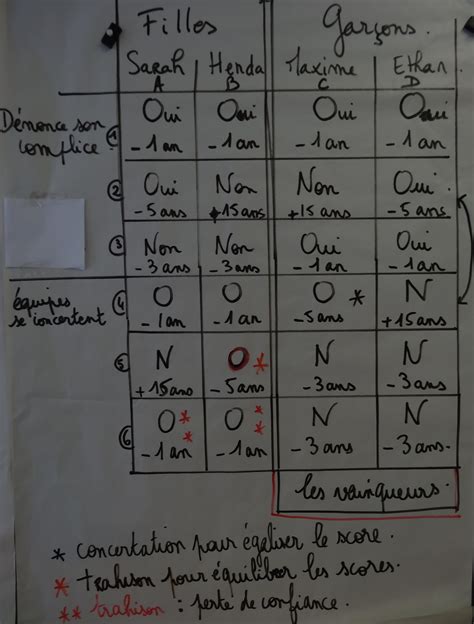 Filles Garçons.
Sarah Henda Maxime Ethan
A B C D
Dénonce son complice ① Oui Oui Oui Oui
- 1 an - 1 an - 1 an - 1 an
② Oui Non Non Oui.
- 5 ans +15 ans +15 ans - 5 ans
③ Non Non Oui Oui
- 3 ans - 3 ans - 1 an - 1 an
équipes se concertent ④ O O O * N
- 1 an - 1 an - 5 ans +15 ans
⑤ N O * N N
+15 ans - 5 ans - 3 ans - 3 ans
⑥ O ** O ** N N
- 1 an - 1 an - 3 ans - 3 ans.
les vainqueurs.
* concertation pour égaliser le score.
* trahison pour équilibrer les scores.
** trahison : perte de confiance.